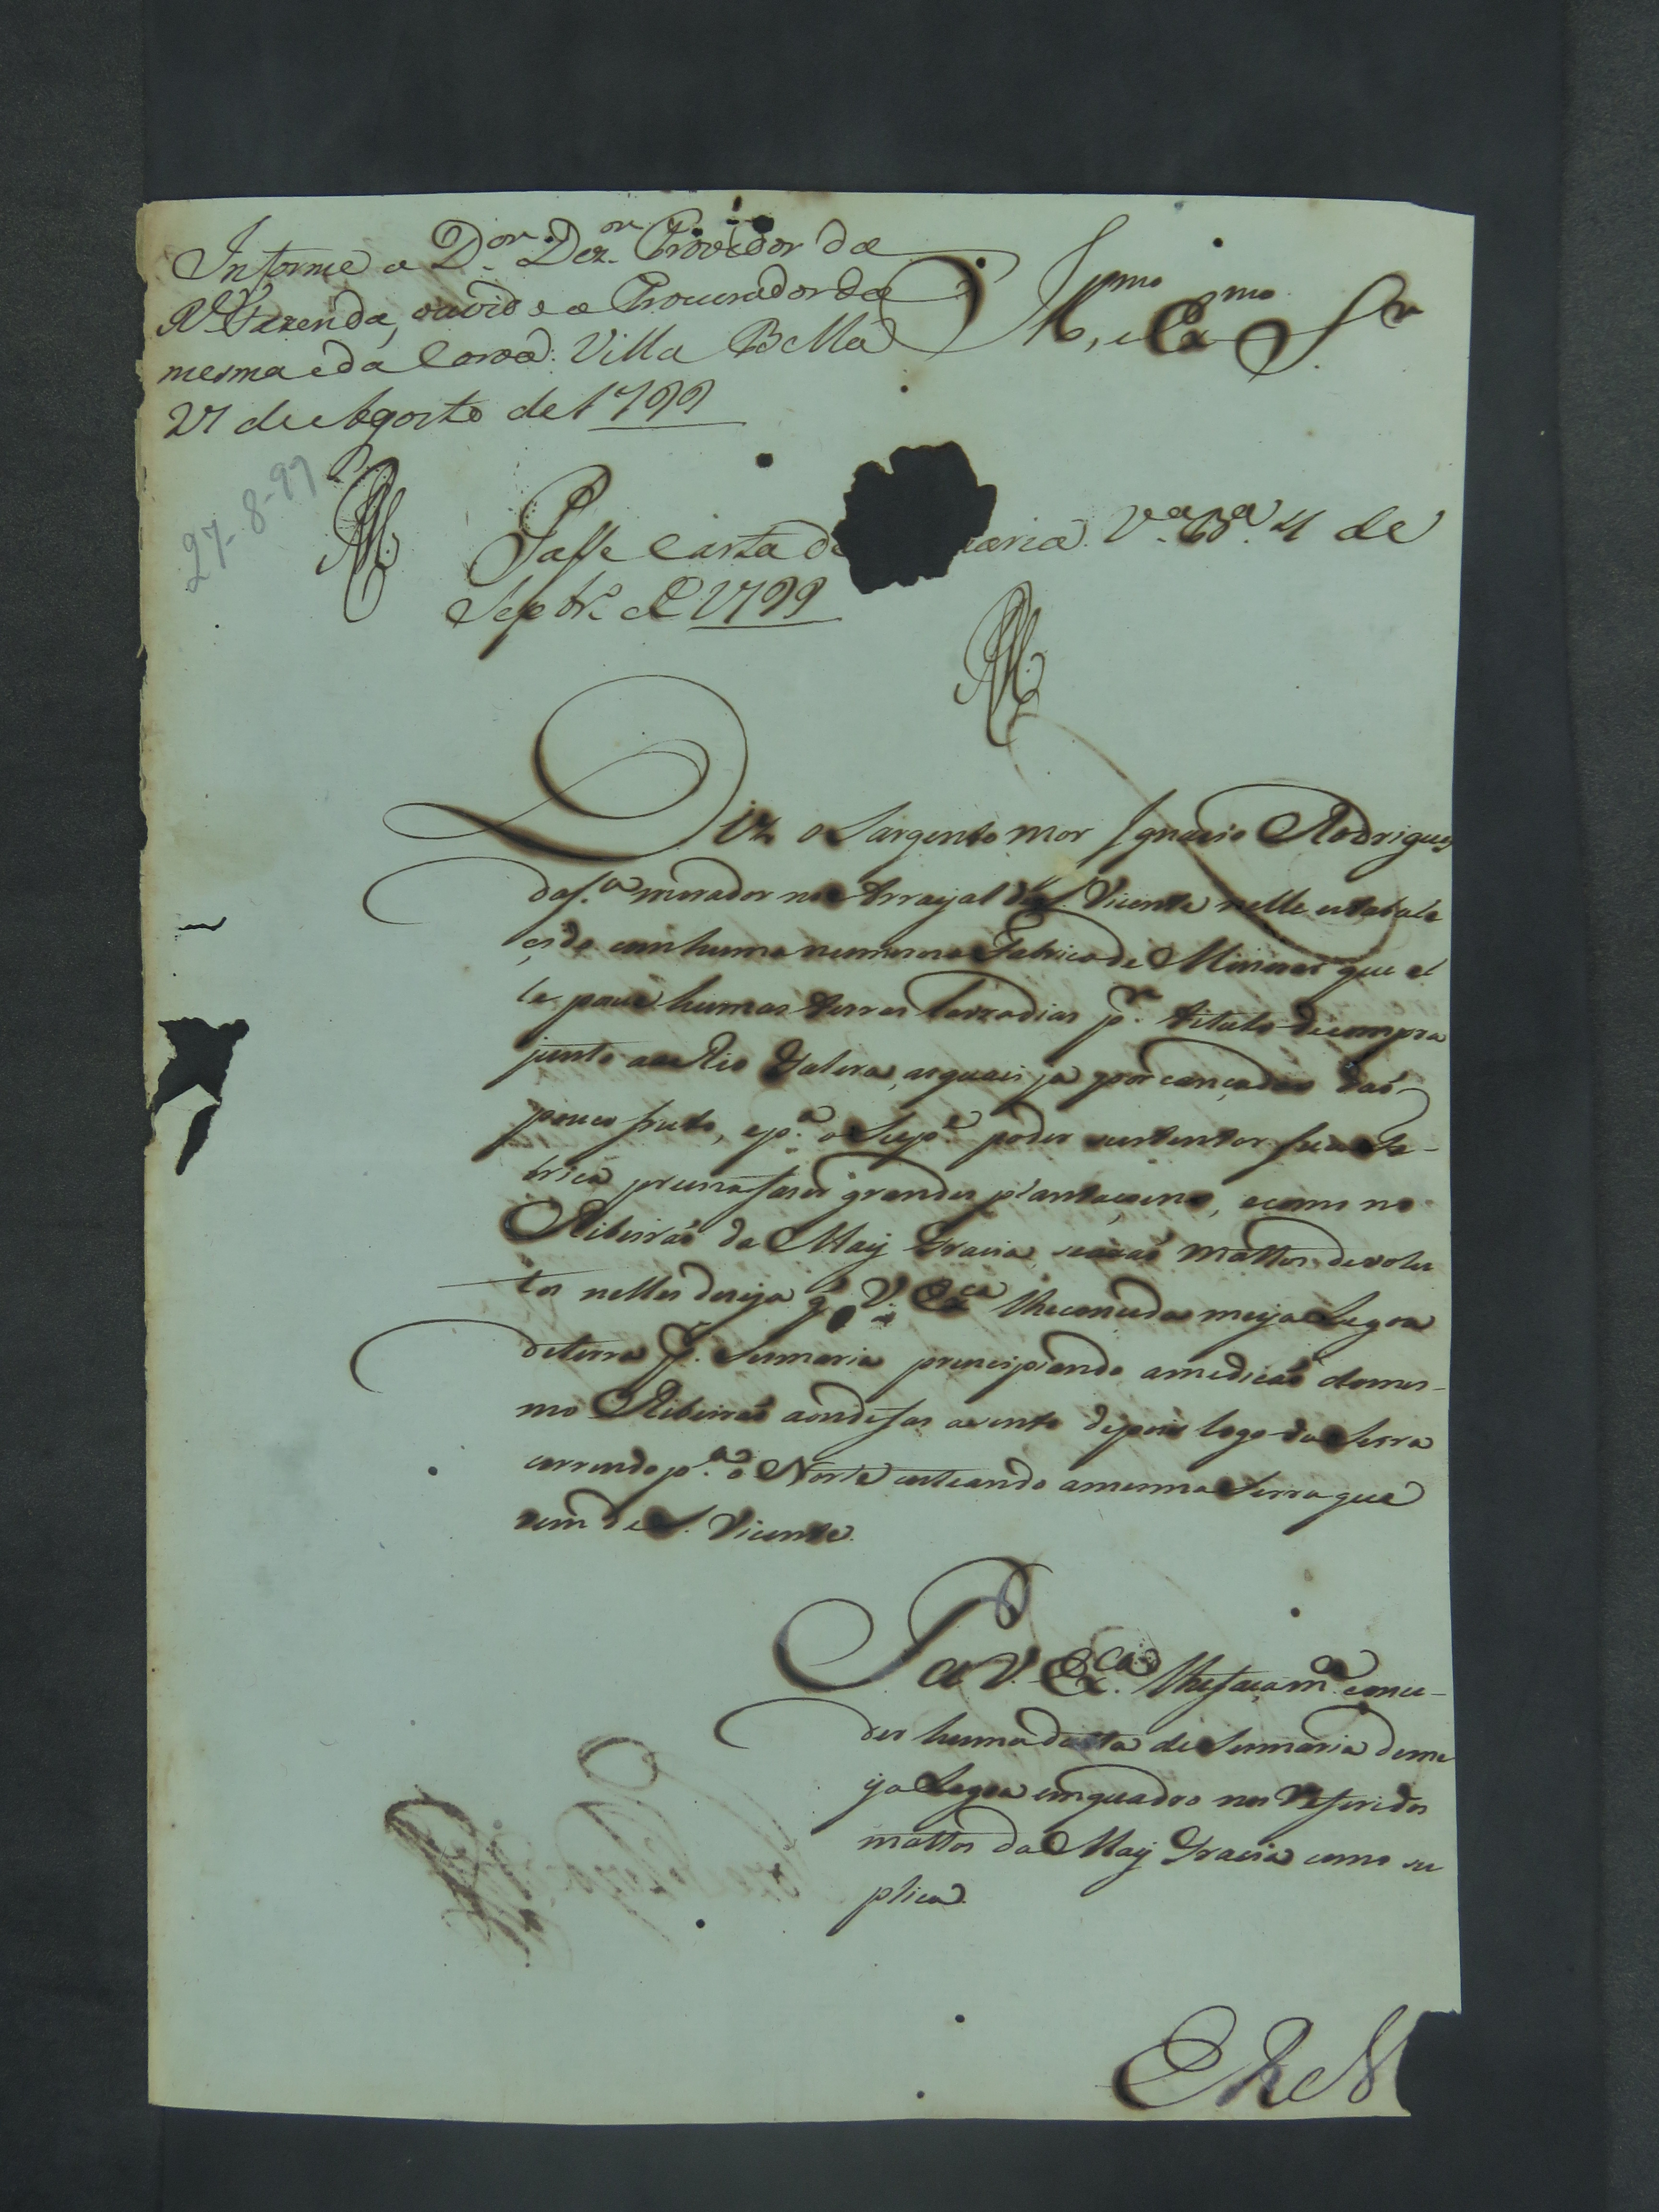 Informe o D.or Dez.or Provedor da
R. Fazenda, ouvido o Procurador da
mesma e da Coroa. Villa Bella
27 de Agosto de 1799
Ill.mo, e Ex.mo Sr.
27-8-99
Passe Carta de maria. V.a B.a 4 de
Septbr.o de 1799
Diz o Sargento mor Ignacio Rodrigues
da S.a morador no Arrayal de S. Vicente nelle estabale
cido com huma numeroza Fabrica de Minerar que el
le pocue humas terras Lavradias p.r titulo de compra
junto ao Rio Galera, as quais ja por cancadas daõ
pouco fruto, e p.a o Sup.e poder sustentar sua Fa-
brica preciza fazer grandes plantaçoens, e como no
Ribeiraõ da May Gracia se achaõ mattos devolu
tos nelles dezeja q V. Ex.ca lhe conceda meya Legoa
de terra p.r Sesmaria principiando a mediçaõ do mes-
mo Ribeiraõ aonde faz acento depois logo da Serra
correndo p.a o Norte costeando a mesma Serra que
vem de S. Vicente.
P a V. Ex.ca lhe faça m.ce conce-
der huma datta de Sesmaria de me
ya Legoa em quadro nos referidos
mattos da May Gracia como su
plica
E R M